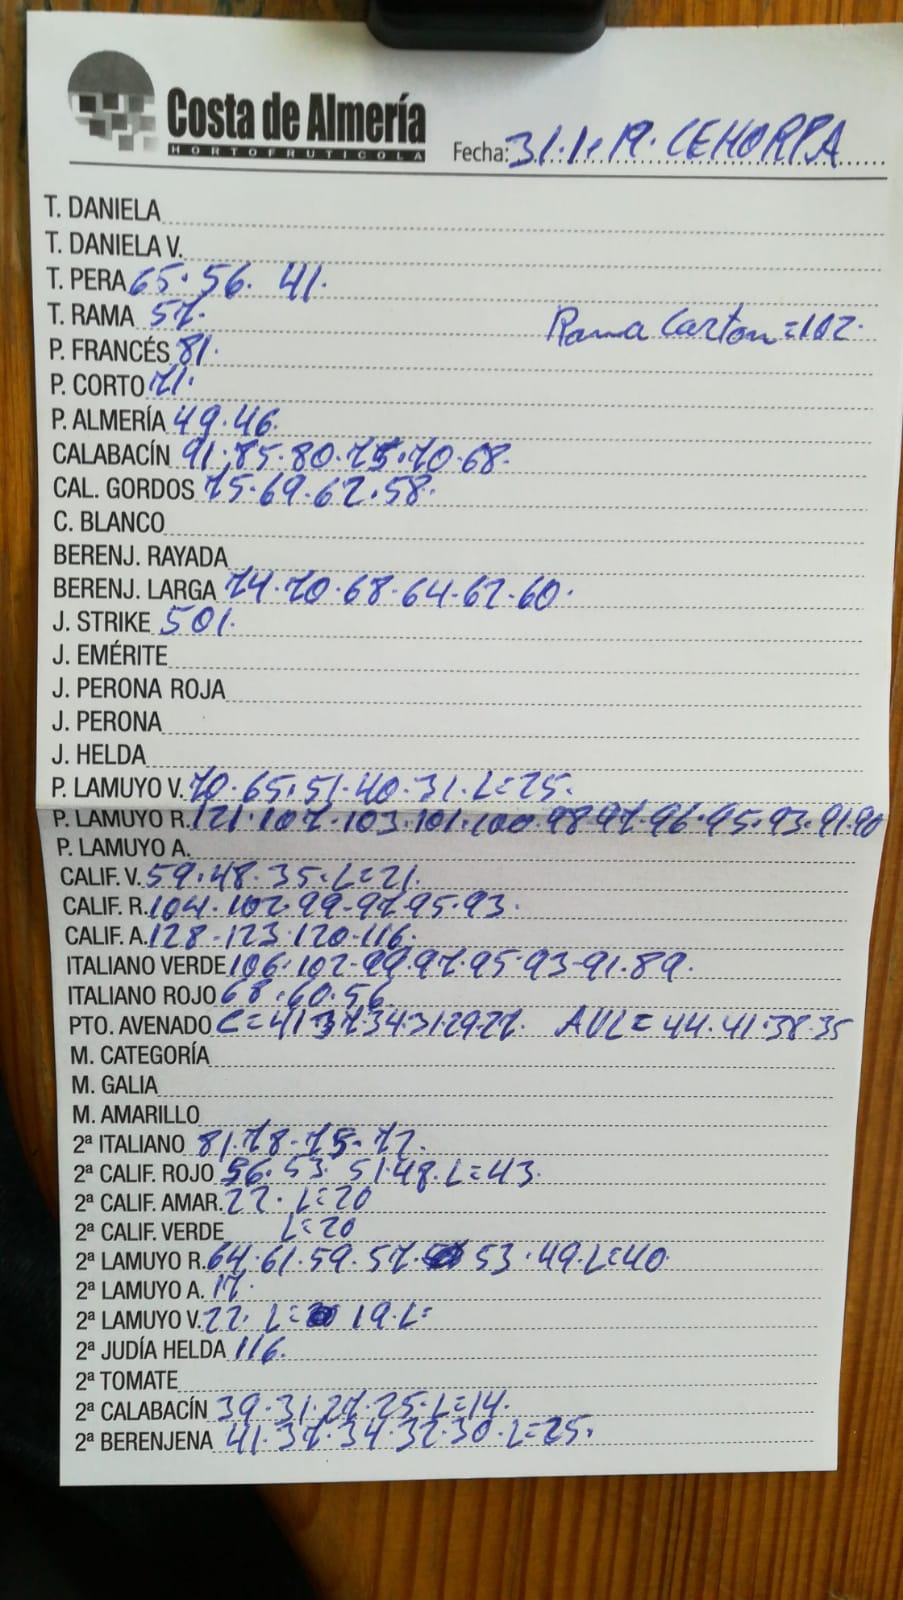 Costa de Almería
HORTOFRUTICOLA
Fecha: 31.1.19. CEHORPA
T. DANIELA
T. DANIELA V.
T. PERA 65. 56. 41.
T. RAMA 57.
Rama Carton=102.
P. FRANCÉS 81.
P. CORTO 71.
P. ALMERÍA 49.46.
CALABACÍN 91.85.80.75.70.68.
CAL. GORDOS 75.69.62.58.
C. BLANCO
BERENJ. RAYADA
BERENJ. LARGA 74.70.68.64.62.60.
J. STRIKE 501.
J. EMÉRITE
J. PERONA ROJA
J. PERONA
J. HELDA
P. LAMUYO V. 70.65.51.40.31.L=25.
P. LAMUYO R. 121.107.103.101.100.98.97.96.95.93.91.90
P. LAMUYO A.
CALIF. V. 59.48.35.L=21.
CALIF. R. 104.102.99.97.95.93.
CALIF. A. 128-123.120.116.
ITALIANO VERDE 106.102.99.97.95.93-91.89.
ITALIANO ROJO 68.60.56
PTO. AVENADO C=41.37.34.31.29.27. AVL=44.41.38.35
M. CATEGORÍA
M. GALIA
M. AMARILLO
2ª ITALIANO 81.78.75.72.
2ª CALIF. ROJO 56.53 51.48.L=43.
2ª CALIF. AMAR. 22. L=20
2ª CALIF. VERDE L=20
2ª LAMUYO R. 64.61.59.57. 53.49.L=40.
2ª LAMUYO A. 17.
2ª LAMUYO V. 22. L= 19.L=
2ª JUDÍA HELDA 116.
2ª TOMATE
2ª CALABACÍN 39.31.27.25.L=14.
2ª BERENJENA 41.37.34.32.30.L=25.